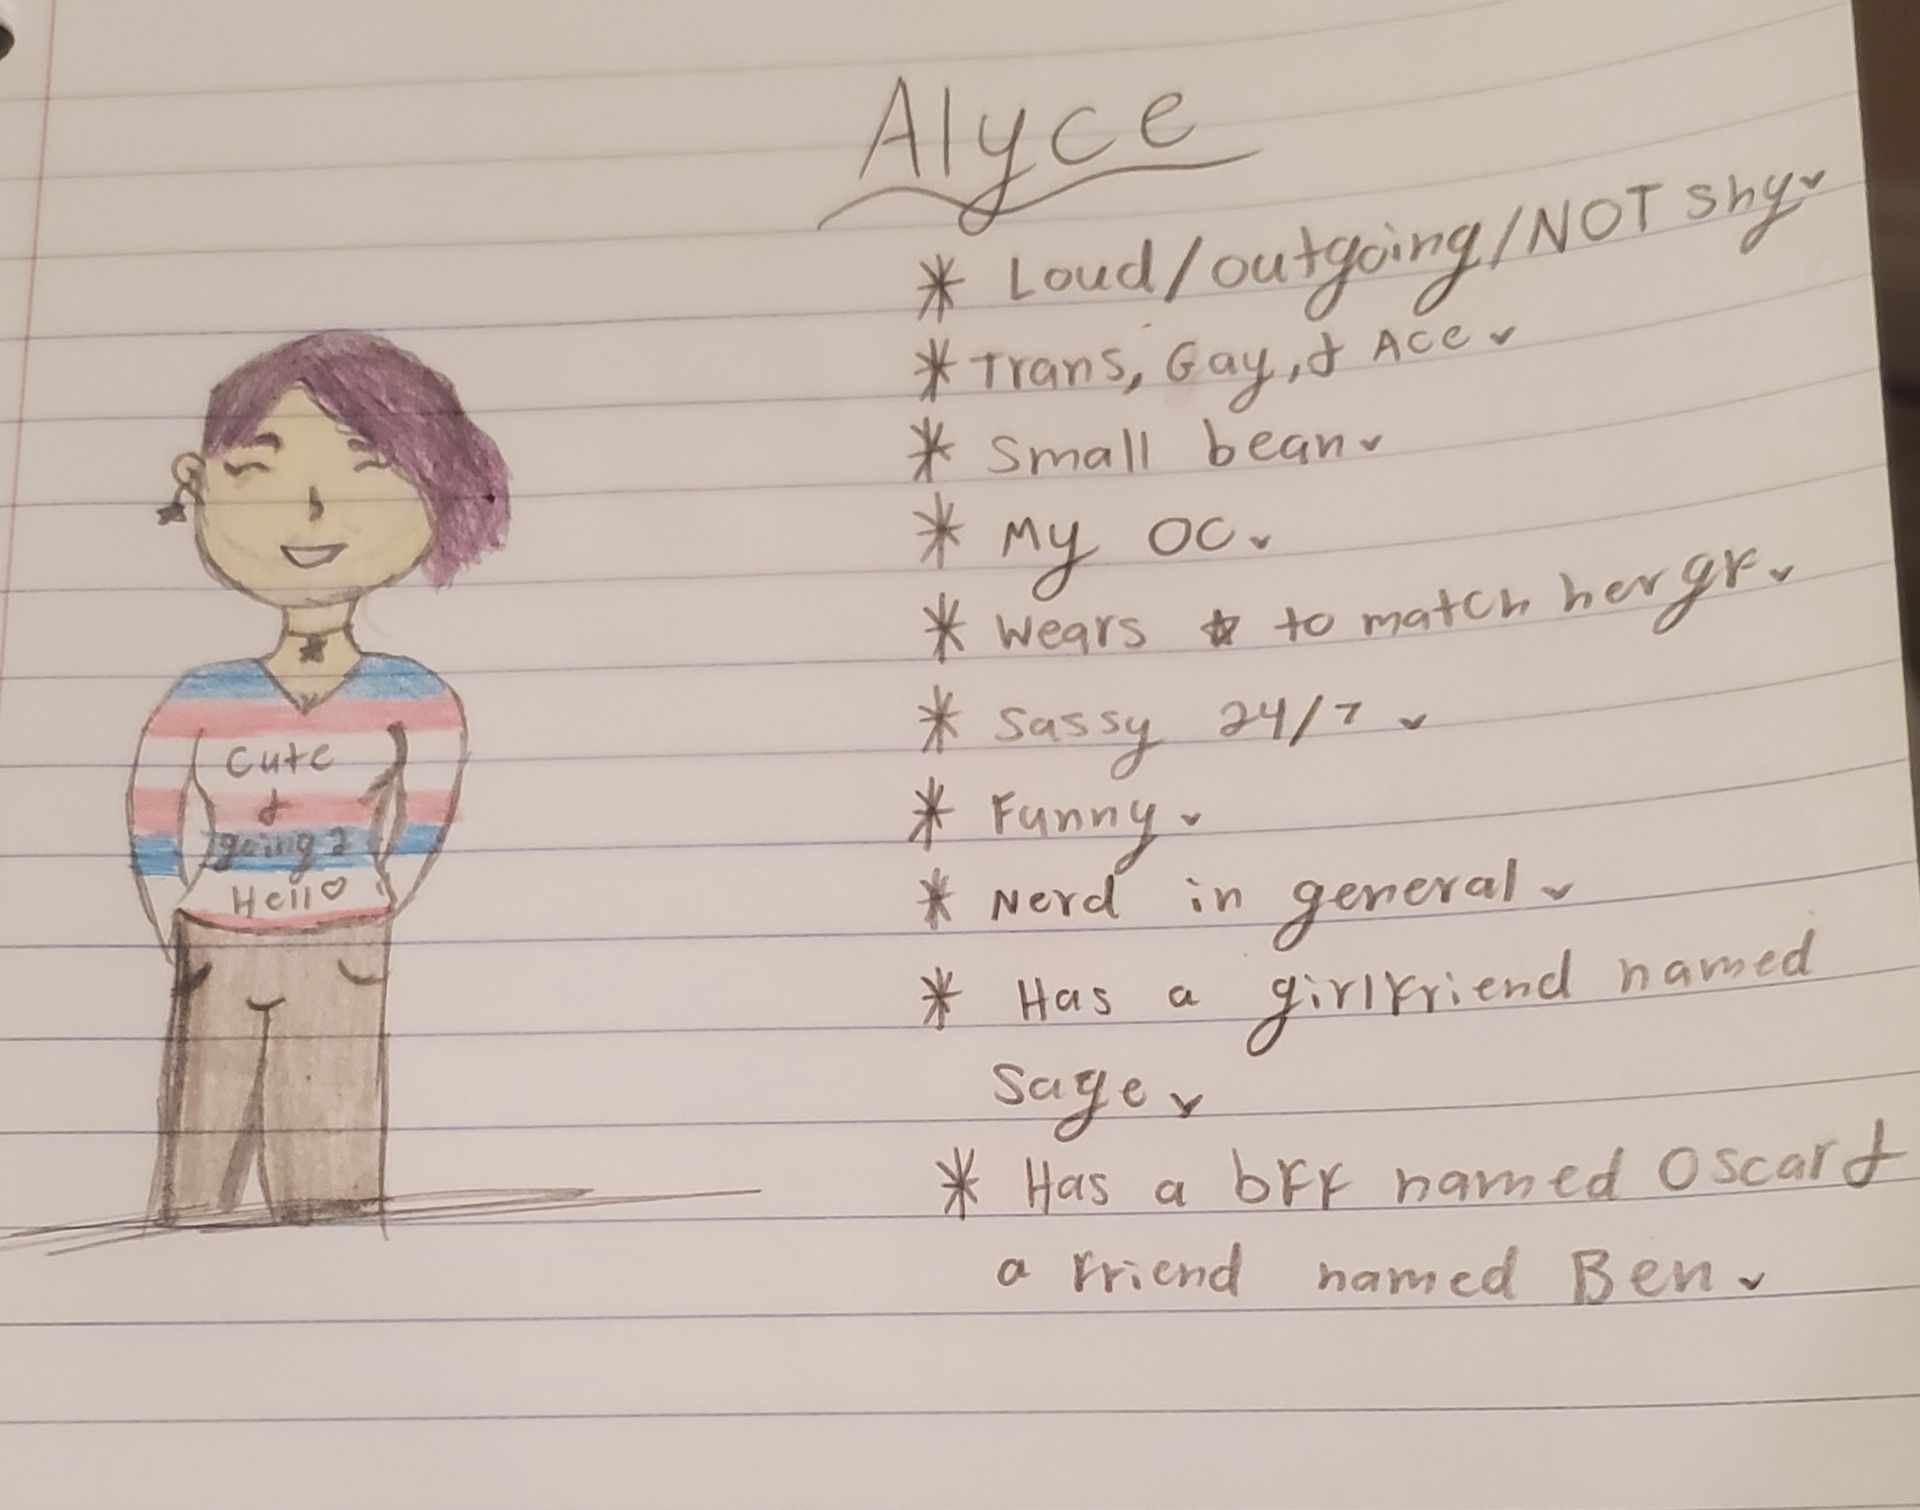 Alyce
* Loud/outgoing/NOT shy
* Trans, Gay, & Ace
* Small bean
* My OC
* Wears ☆ to match her gf
* Sassy 24/7
* Funny
* Nerd in general
* Has a girlfriend named
Sage
* Has a bff named Oscar &
a friend named Ben
Cute
&
going 2
Hell♡